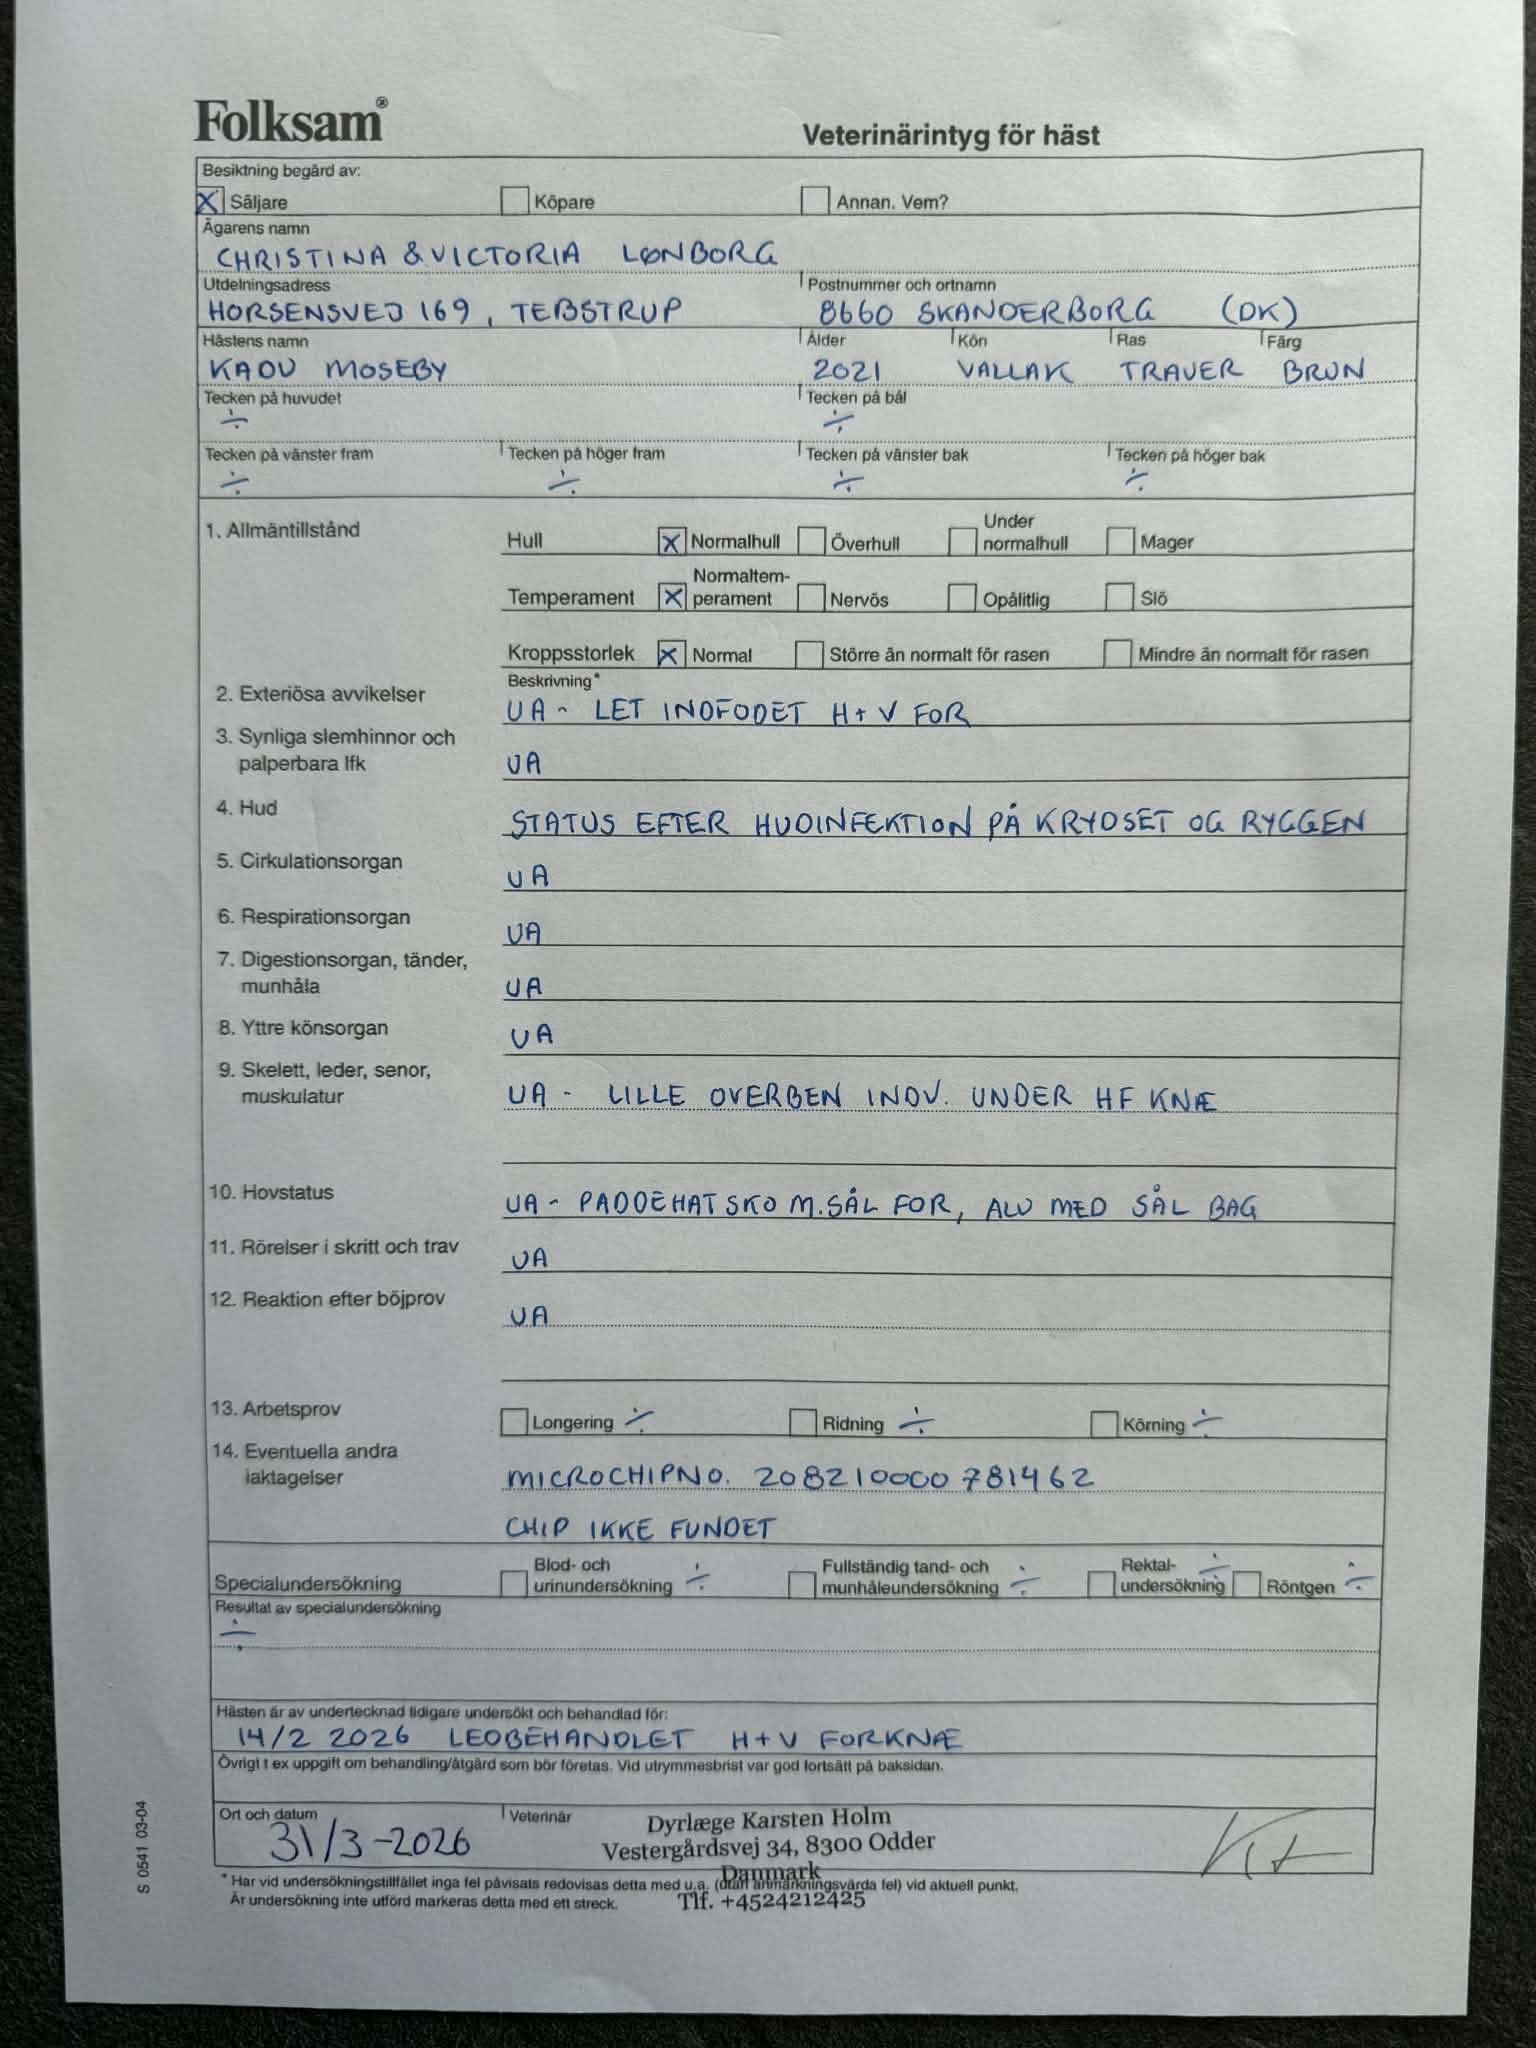 Folksam®
Veterinärintyg för häst
Besiktning begärd av:
X Säljare Köpare Annan. Vem?
Ägarens namn
CHRISTINA & VICTORIA LØNBORG
Utdelningsadress Postnummer och ortnamn
HORSENSVEJ 169, TEBSTRUP 8660 SKANDERBORG (DK)
Hästens namn Ålder Kön Ras Färg
KADU MOSEBY 2021 VALLAK TRAVER BRUN
Tecken på huvudet Tecken på bål
÷ ÷
Tecken på vänster fram Tecken på höger fram Tecken på vänster bak Tecken på höger bak
÷ ÷ ÷ ÷
1. Allmäntillstånd
Hull X Normalhull Överhull Under normalhull Mager
Temperament X Normaltem-perament Nervös Opålitlig Slö
Kroppsstorlek X Normal Större än normalt för rasen Mindre än normalt för rasen
Beskrivning*
2. Exteriösa avvikelser UA - LET INDFODET H+V FOR
3. Synliga slemhinnor och
palperbara lfk UA
4. Hud STATUS EFTER HUDINFEKTION PÅ KRYDSET OG RYGGEN
5. Cirkulationsorgan UA
6. Respirationsorgan UA
7. Digestionsorgan, tänder,
munhåla UA
8. Yttre könsorgan UA
9. Skelett, leder, senor,
muskulatur UA - LILLE OVERBEN INDV. UNDER HF KNÆ
10. Hovstatus UA - PADDEHATSKO M. SÅL FOR, ALU MED SÅL BAG
11. Rörelser i skritt och trav UA
12. Reaktion efter böjprov UA
13. Arbetsprov Longering ÷ Ridning ÷ Körning ÷
14. Eventuella andra
iaktagelser MICROCHIPNO. 208210000781462
CHIP IKKE FUNDET
Specialundersökning Blod- och urinundersökning ÷ Fullständig tand- och munhåleundersökning ÷ Rektal-undersökning ÷ Röntgen ÷
Resultat av specialundersökning
÷
Hästen är av undertecknad tidigare undersökt och behandlad för:
14/2 2026 LEDBEHANDLET H+V FORKNÆ
Övrigt t ex uppgift om behandling/åtgärd som bör företas. Vid utrymmesbrist var god fortsätt på baksidan.
Ort och datum Veterinär
31/3-2026
Dyrlæge Karsten Holm
Vestergårdsvej 34, 8300 Odder
Danmark
Tlf. +4524212425
* Har vid undersökningstillfället inga fel påvisats redovisas detta med u.a. (utan anmärkningsvärda fel) vid aktuell punkt.
Är undersökning inte utförd markeras detta med ett streck.
S 0541 03-04